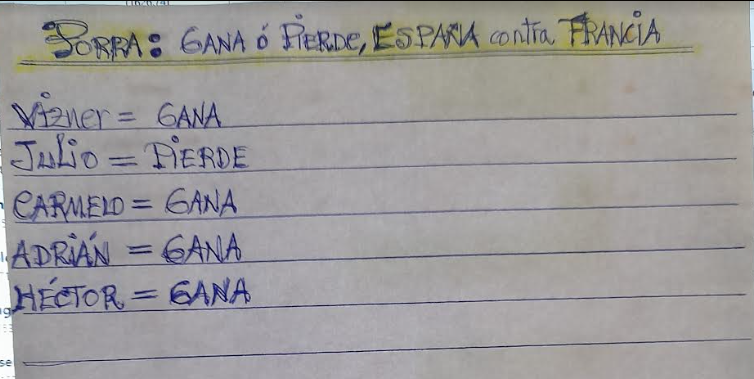 PORRA: GANA ó PIERDE, ESPAÑA contra FRANCIA
Vizner = GANA
Julio = PIERDE
CARMELO = GANA
ADRIÁN = GANA
HÉCTOR = GANA